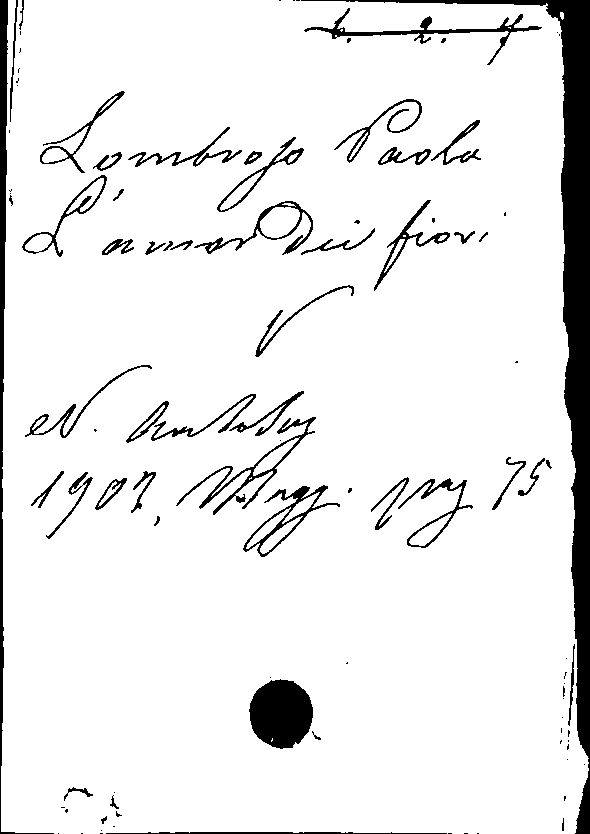 b. 2. 7
Lombroso Paola
L'amor dei fiori
V
N. Antolog
1907, Magg. pag 75